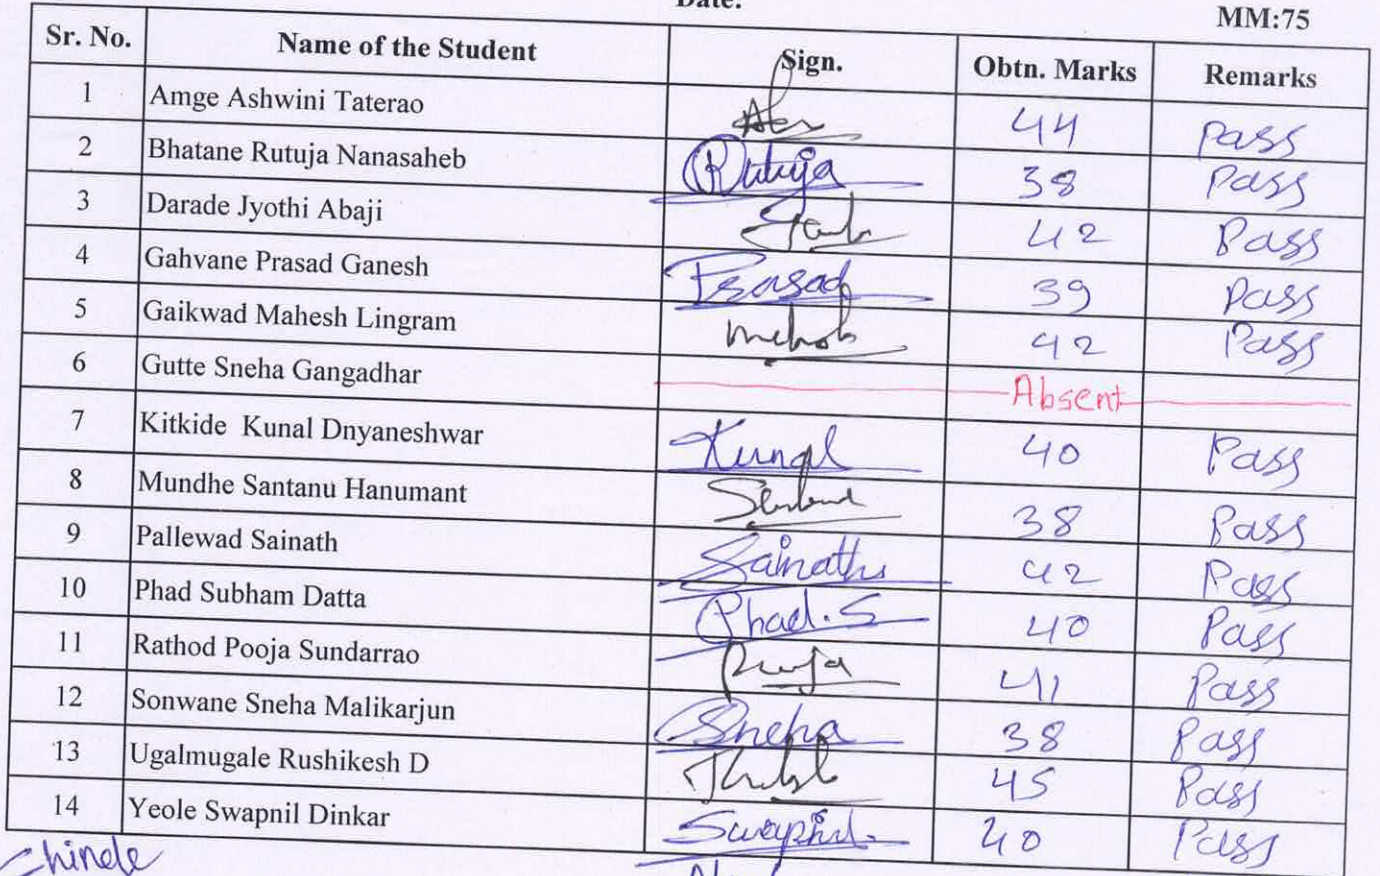 Date:
MM:75
Sr. No. Name of the Student Sign. Obtn. Marks Remarks
1 Amge Ashwini Taterao 44 pass
2 Bhatane Rutuja Nanasaheb Rutuja 38 Pass
3 Darade Jyothi Abaji 42 Pass
4 Gahvane Prasad Ganesh Prasad 39 Pass
5 Gaikwad Mahesh Lingram 42 Pass
6 Gutte Sneha Gangadhar Absent
7 Kitkide Kunal Dnyaneshwar Kunal 40 Pass
8 Mundhe Santanu Hanumant 38 Pass
9 Pallewad Sainath Sainath 42 Pass
10 Phad Subham Datta Phad.S 40 Pass
11 Rathod Pooja Sundarrao 41 Pass
12 Sonwane Sneha Malikarjun Sneha 38 Pass
13 Ugalmugale Rushikesh D 45 Pass
14 Yeole Swapnil Dinkar Swapnil 40 Pass